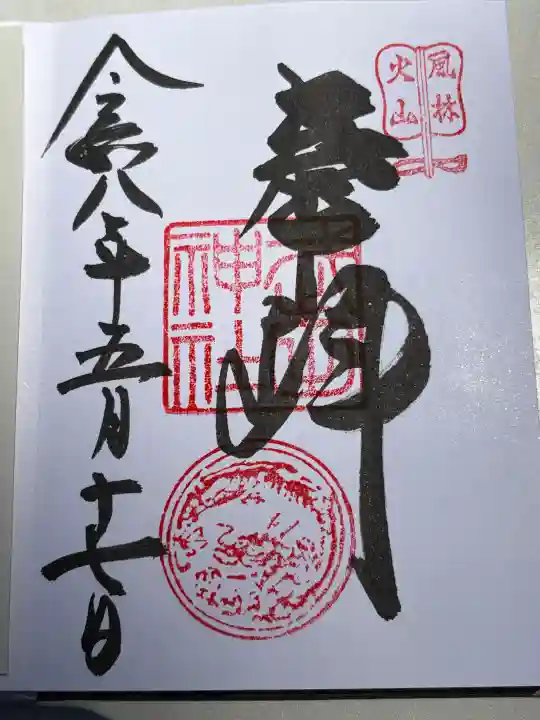 風林
火山
奉拝
神社
令和八年五月十七日